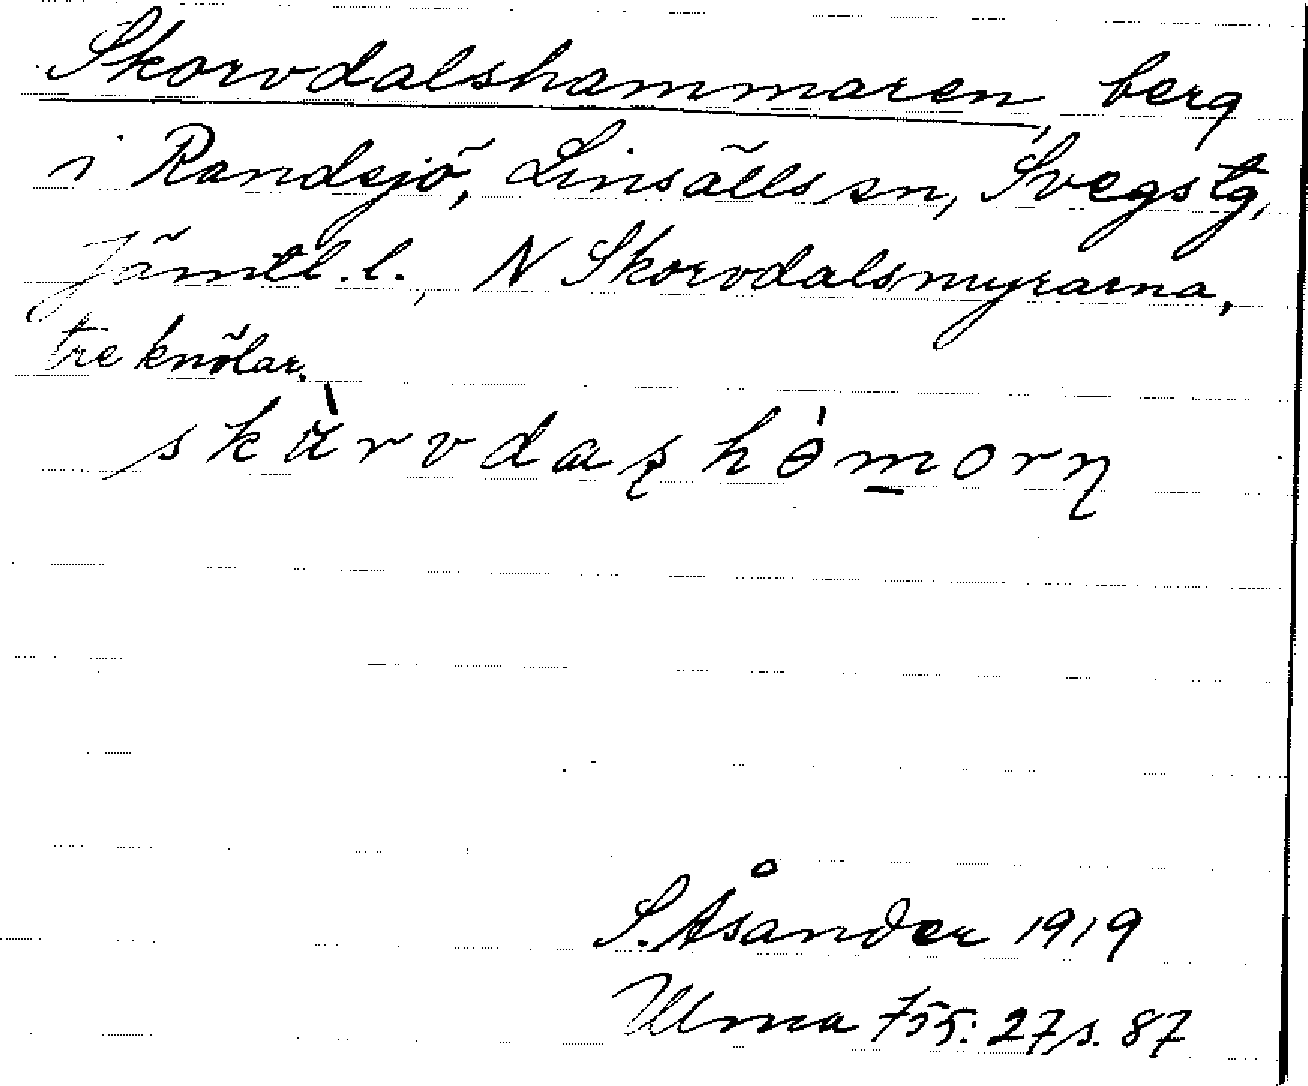 Skorvdalshammaren, berg
i Randsjö, Linsälls sn, Svegs tg,
Jämtl. l., N Skorvdalsmyrarna,
tre knölar.
S. Åsander 1919
Ulma 755: 27, s. 87